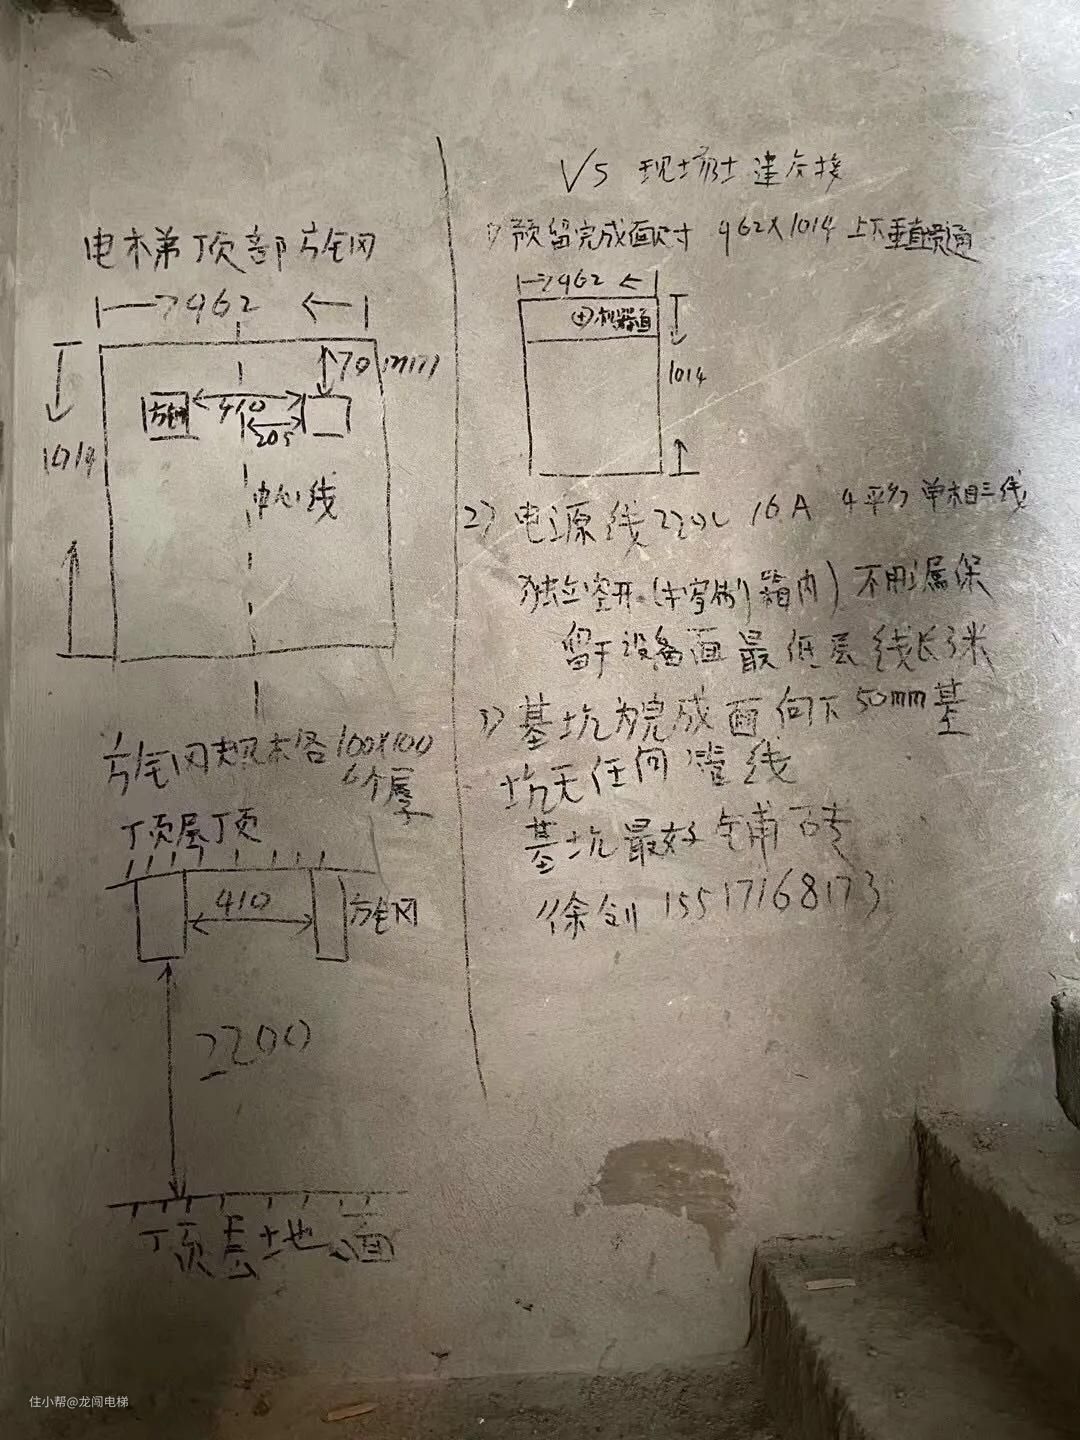 电梯顶部方钢
962
70 mm
方钢
410
205
1014
中心线
方钢规格100X100
6个厚
顶层顶
410
方钢
2200
顶层地面
VS 现场土建交接
1) 预留完成面尺寸 962X1014 上下垂直贯通
962
机器面
1014
2) 电源线 220V 16A 4平方 单相三线
独立空开(牛字制箱内) 不用漏保
留于设备面最低层线长3米
3) 基坑为完成面向下50mm基
坑无任何管线
基坑最好铺砖
徐剑 15517168173
住小帮@龙闯电梯